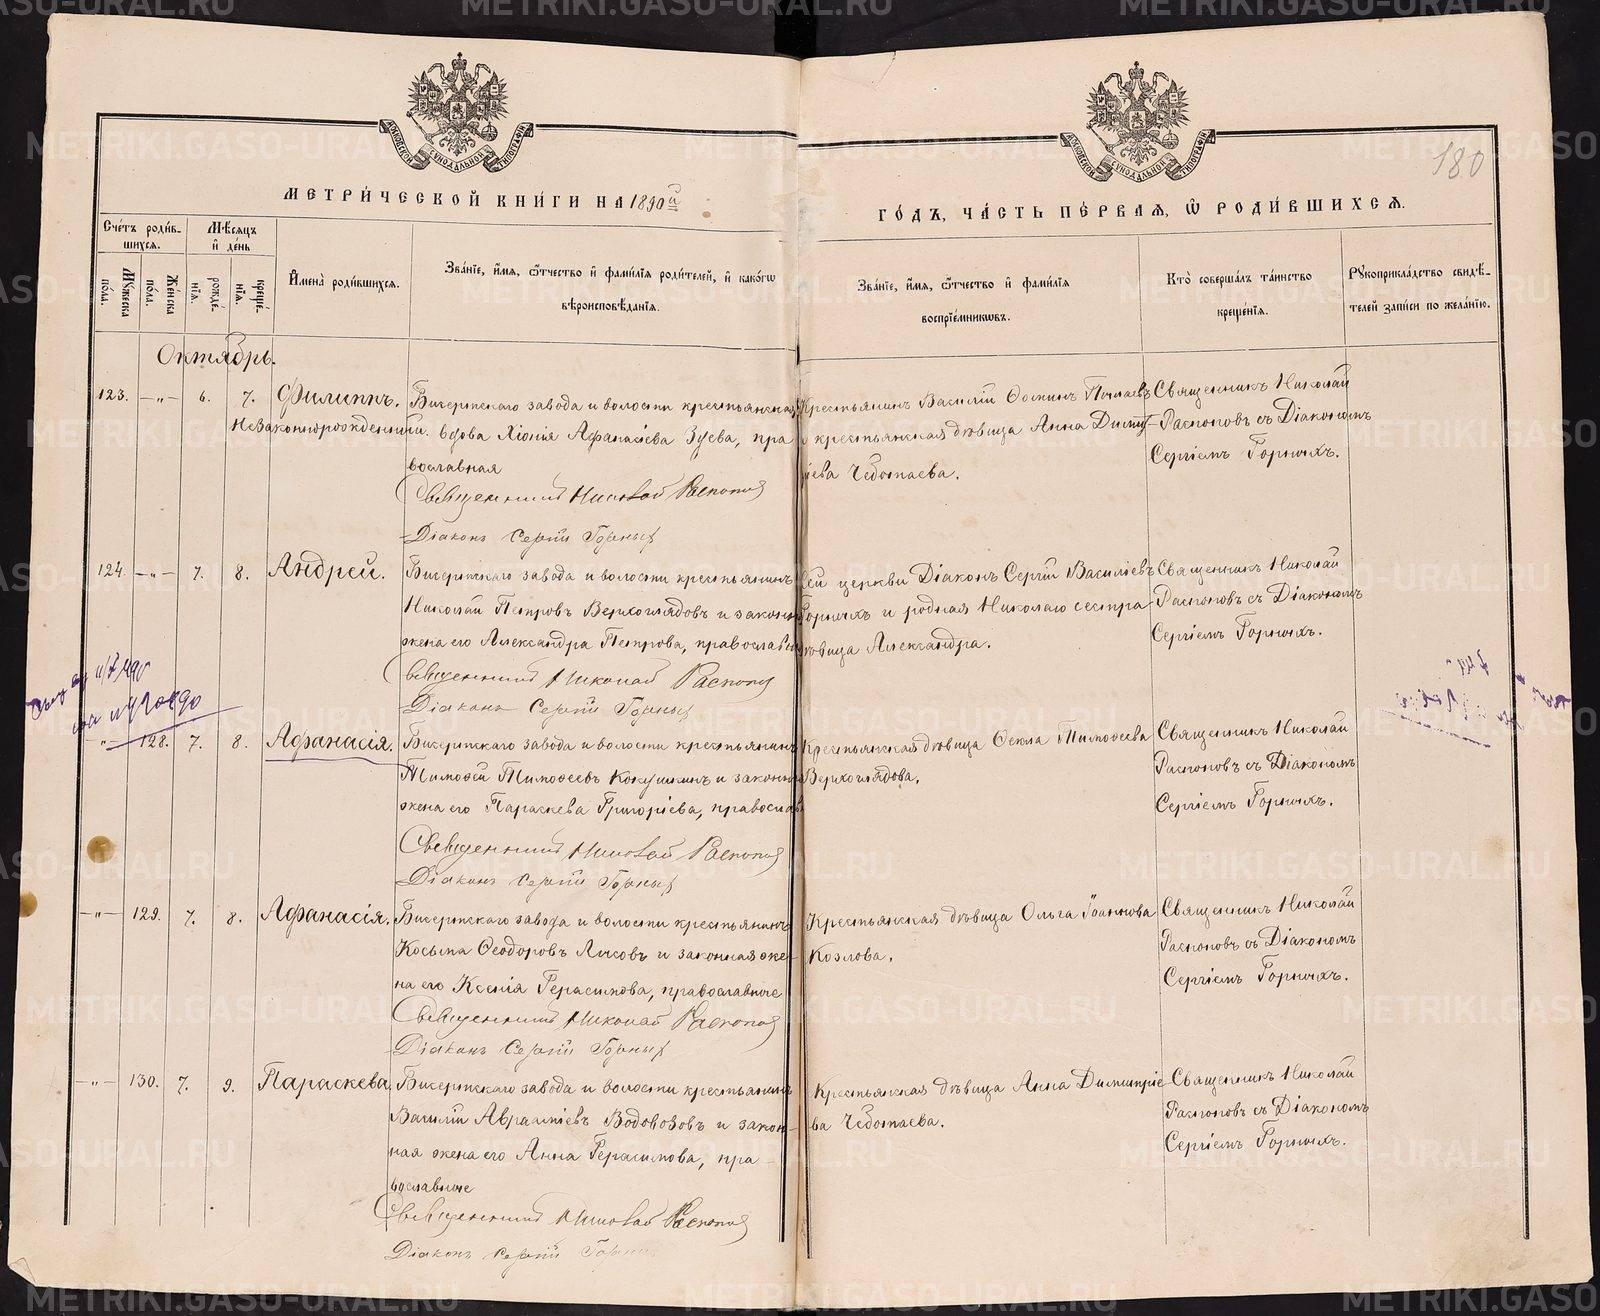 180
МЕТРИ́ЧЕСКОЙ КНИ́ГИ НА 1890й
ГО́ДЪ, ЧА́СТЬ ПЕ́РВАЯ, Ѡ РОДИ́ВШИХСЯ.
Сче́тъ роди́в-
шихся.
Мѣ́сяцъ
и де́нь
Мꙋ́жеска
по́ла.
Же́нска
по́ла.
рожде́-
нїя.
креще́-
нїя.
И́мена̀ роди́вшихся.
Зва́нїе, и́мя, ѻ҆́тчество и҆ фами́лїя роди́телей, и҆ како́гѡ
вѣроисповѣ́данїя.
Зва́нїе, и́мя, ѻ҆́тчество и҆ фами́лїя
воспрїе́мникѡвъ.
Кто̀ соверша́лъ та́инство
креще́нїя.
Рꙋкоприкла́дство свидѣ́-
телей за́писи по жела́нїю.
Октябрь.
123. —„— 6. 7. Филиппъ.
Незаконнорожденный.
Бисертскаго завода и волости крестьянская
вдова Хіонія Афанасіева Зуева, пра
вославная
Священникъ Николай Распоповъ
Діаконъ Сергій Горныхъ
Крестьянинъ Василій Ѳоминъ
и крестьянская дѣвица Анна Димит-
ріева Чеботаева.
Священникъ Николай
Распоповъ съ Діакономъ
Сергіемъ Горныхъ.
124. —„— 7. 8. Андрей.
Бисертскаго завода и волости крестьянинъ
Николай Петровъ Верхоглядовъ и законн
жена его Александра Петрова, православн
Священникъ Николай Распоповъ
Діаконъ Сергій Горныхъ
сей церкви Діаконъ Сергій Василіевъ
Горныхъ и родная Николаю сестра
дѣвица Александра.
Священникъ Николай
Распоповъ съ Діакономъ
Сергіемъ Горныхъ.
—„— 128. 7. 8. Афанасія.
Бисертскаго завода и волости крестьянинъ
Тимоѳей Тимоѳеевъ Кокушкинъ и законн
жена его Параскева Григоріева, православ
Священникъ Николай Распоповъ
Діаконъ Сергій Горныхъ
Крестьянская дѣвица Ѳекла Тимоѳеева
Верхоглядова.
Священникъ Николай
Распоповъ съ Діакономъ
Сергіемъ Горныхъ.
—„— 129. 7. 8. Афанасія.
Бисертскаго завода и волости крестьянинъ
Косьма Ѳеодоровъ Лисовъ и законная же-
на его Ксенія Герасимова, православные
Священникъ Николай Распоповъ
Діаконъ Сергій Горныхъ
Крестьянская дѣвица Ольга Іоаннова
Козлова.
Священникъ Николай
Распоповъ съ Діакономъ
Сергіемъ Горныхъ.
—„— 130. 7. 9. Параскева
Бисертскаго завода и волости крестьянинъ
Василій Авраамiевъ Водовозовъ и закон-
ная жена его Анна Герасимова, пра-
вославные
Священникъ Николай Распоповъ
Діаконъ Сергій Горныхъ
Крестьянская дѣвица Анна Димитріе-
ва Чеботаева.
Священникъ Николай
Распоповъ съ Діакономъ
Сергіемъ Горныхъ.
METRIKI.GASO-URAL.RU